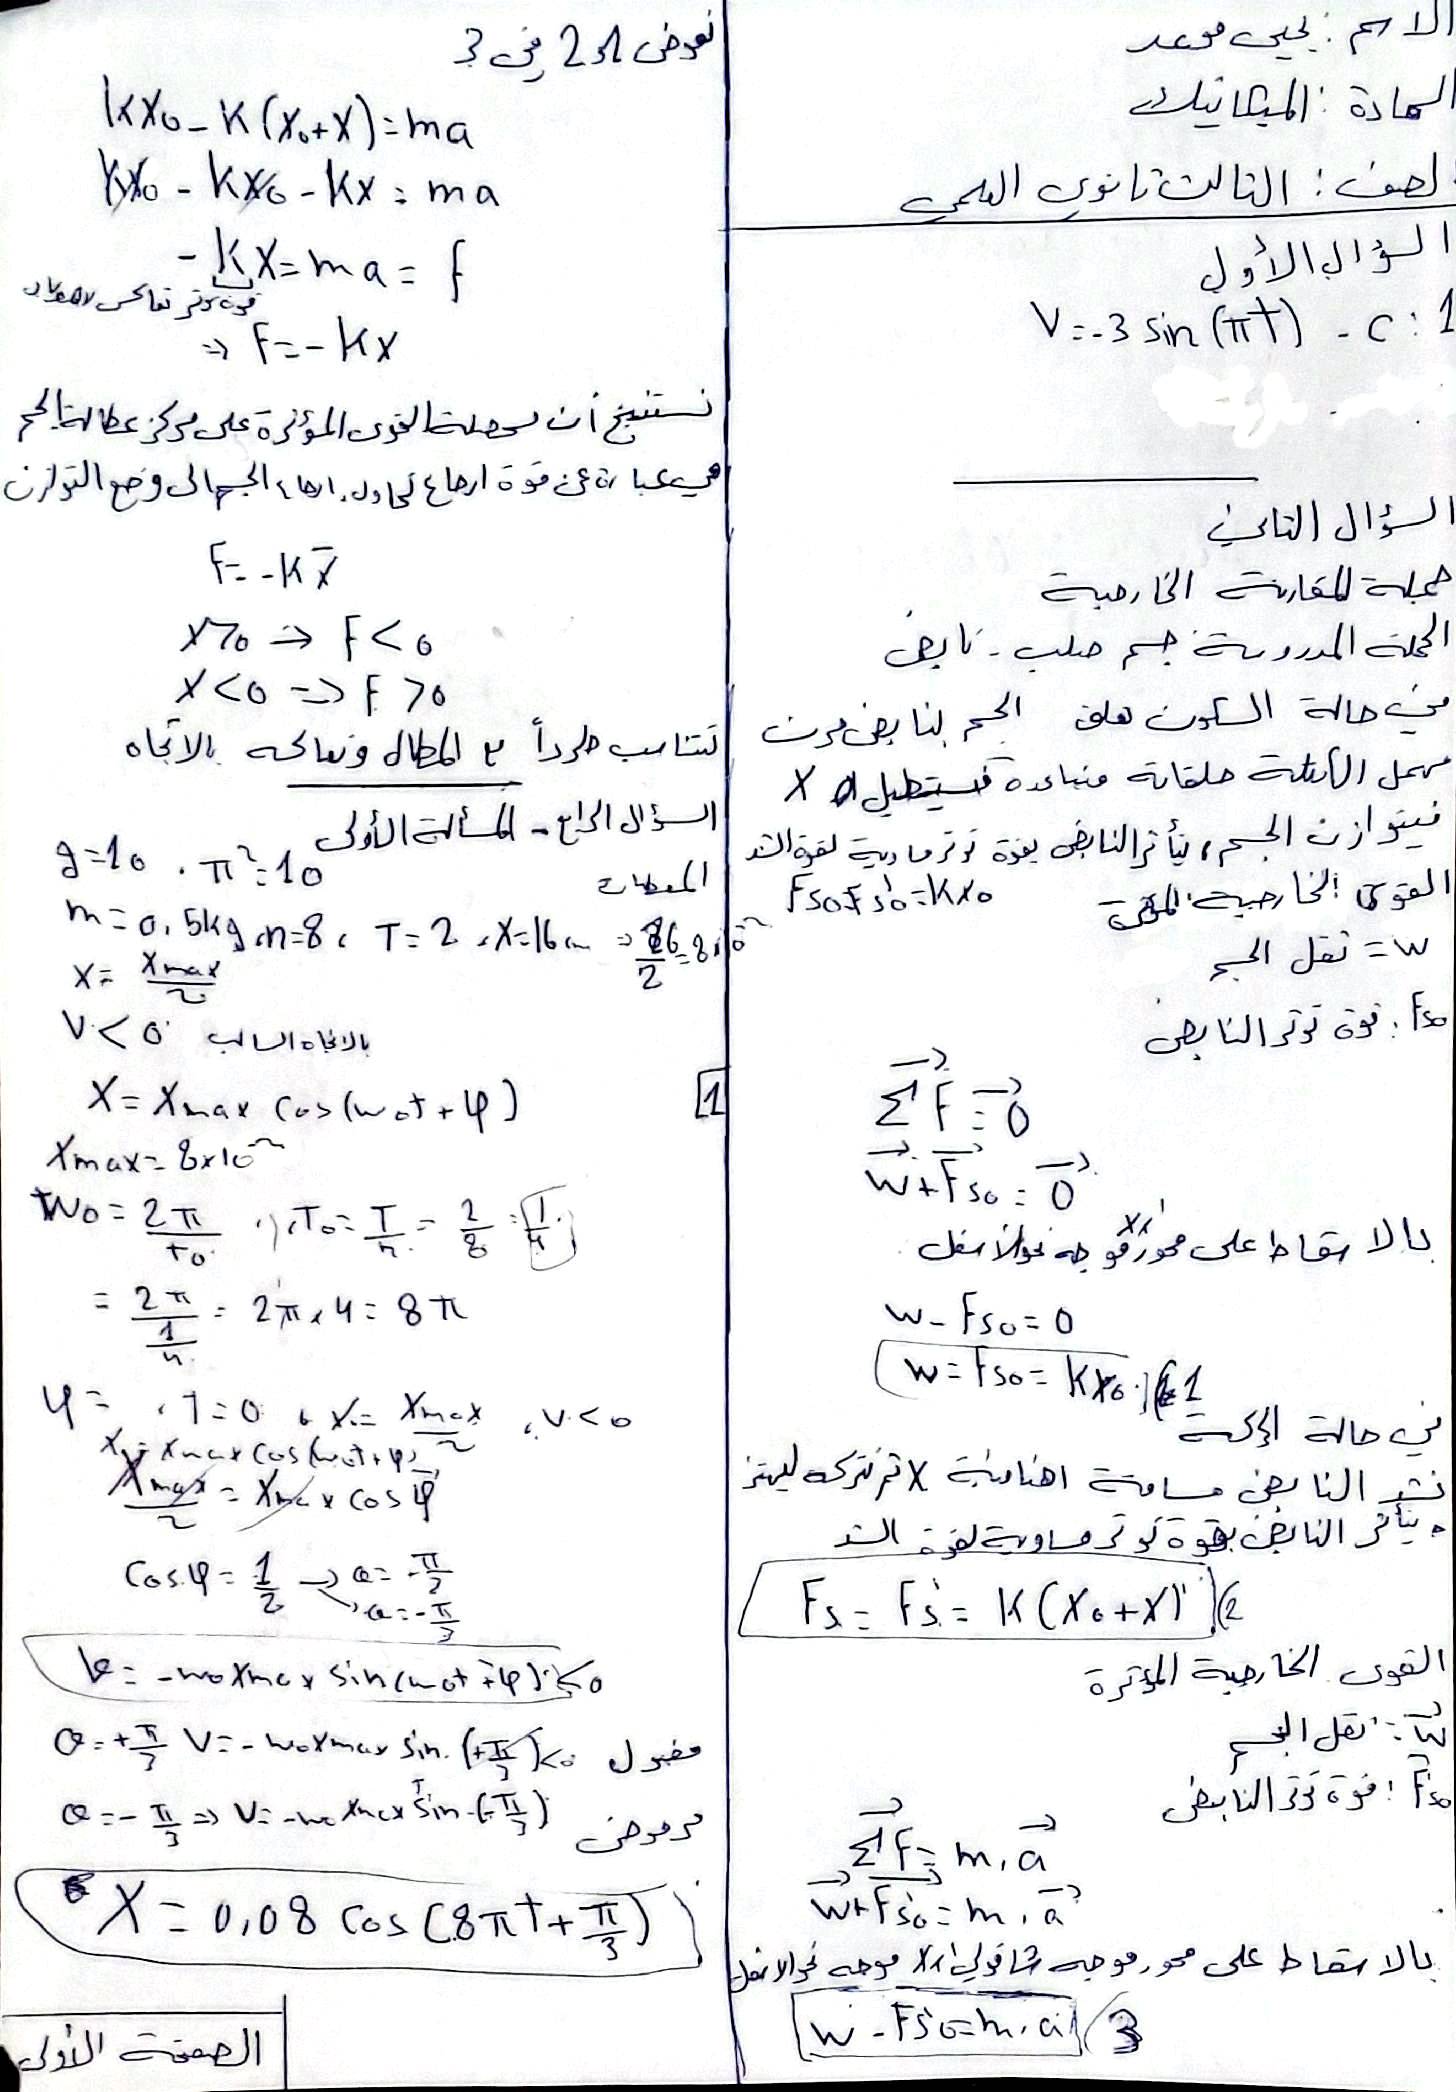 الاسم: يحيى موعد
المادة: الميكانيك
الصف: الثالث ثانوي العلمي
السؤال الأول
1: C - V=-3 sin(πt)
السؤال الثاني
جملة المقارنة الخارجية
الجملة المدروسة: جسم صلب - نابض
في حالة السكون علق الجسم بنابض مرن
مهمل الكتلة حلقاته متباعدة فيستطيل X
فيتوازن الجسم، يتأثر النابض بقوة توتر مساوية لقوة الشد
القوى الخارجية المؤثرة Fs0=Fs0'=Kx0
W = ثقل الجسم
Fs0: قوة توتر النابض
ΣF=0
W+Fs0=0
بالاسقاط على محور xx' موجه نحو الأسفل
W-Fs0=0
W=Fs0=Kx0 (1
في حالة الحركة
نشد النابض مسافة اضافية X ثم نتركه ليهتز
يتأثر النابض بقوة توتر مساوية لقوة الشد
Fs=Fs'=K(X0+X) (2
القوى الخارجية المؤثرة
W: ثقل الجسم
Fs0: قوة توتر النابض
ΣF=m.a
W+Fs0'=m.a
بالاسقاط على محور موجه شاقولي xx' موجه نحو الاسفل
W-Fs'0=m.a (3
نعوض 1 و 2 في 3
KX0-K(X0+X)=ma
KX0-KX0-KX=ma
-KX=ma=F
قوة توتر تعاكس
⇒ F=-KX
نستنتج أن محصلة القوى المؤثرة على مركز عطالة الجسم
هي عبارة عن قوة ارجاع تحاول ارجاع الجسم الى وضع التوازن
F=-Kx̄
X>0 ⇒ F<0
X<0 ⇒ F>0
تتناسب طرداً مع المطال وتعاكسه بالاتجاه
السؤال الرابع - المسألة الأولى
المعطيات g=10 . π²=10
m=0,5kg, n=8, T=2, X=16cm ⇒ 16/2=8×10⁻²
X=Xmax/2
V<0 بالاتجاه السالب
1 X=Xmax cos(ω0t+φ)
Xmax=8×10⁻²
ω0=2π/T0, T0=T/n=2/8=1/4
=2π/(1/4)=2π×4=8π
φ= , T=0, X=Xmax/2, V<0
X=Xmax cos(ω0t+φ)
Xmax/2=Xmax cosφ
cosφ=1/2 → φ=π/3
φ=-π/3
V=-ω0Xmax sin(ω0t+φ)<0
φ=+π/3 V=-ω0Xmax sin(+π/3)<0 مقبول
φ=-π/3 ⇒ V=-ω0Xmax sin(-π/3) مرفوض
X=0,08 cos(8πt+π/3)
الصفحة الأولى